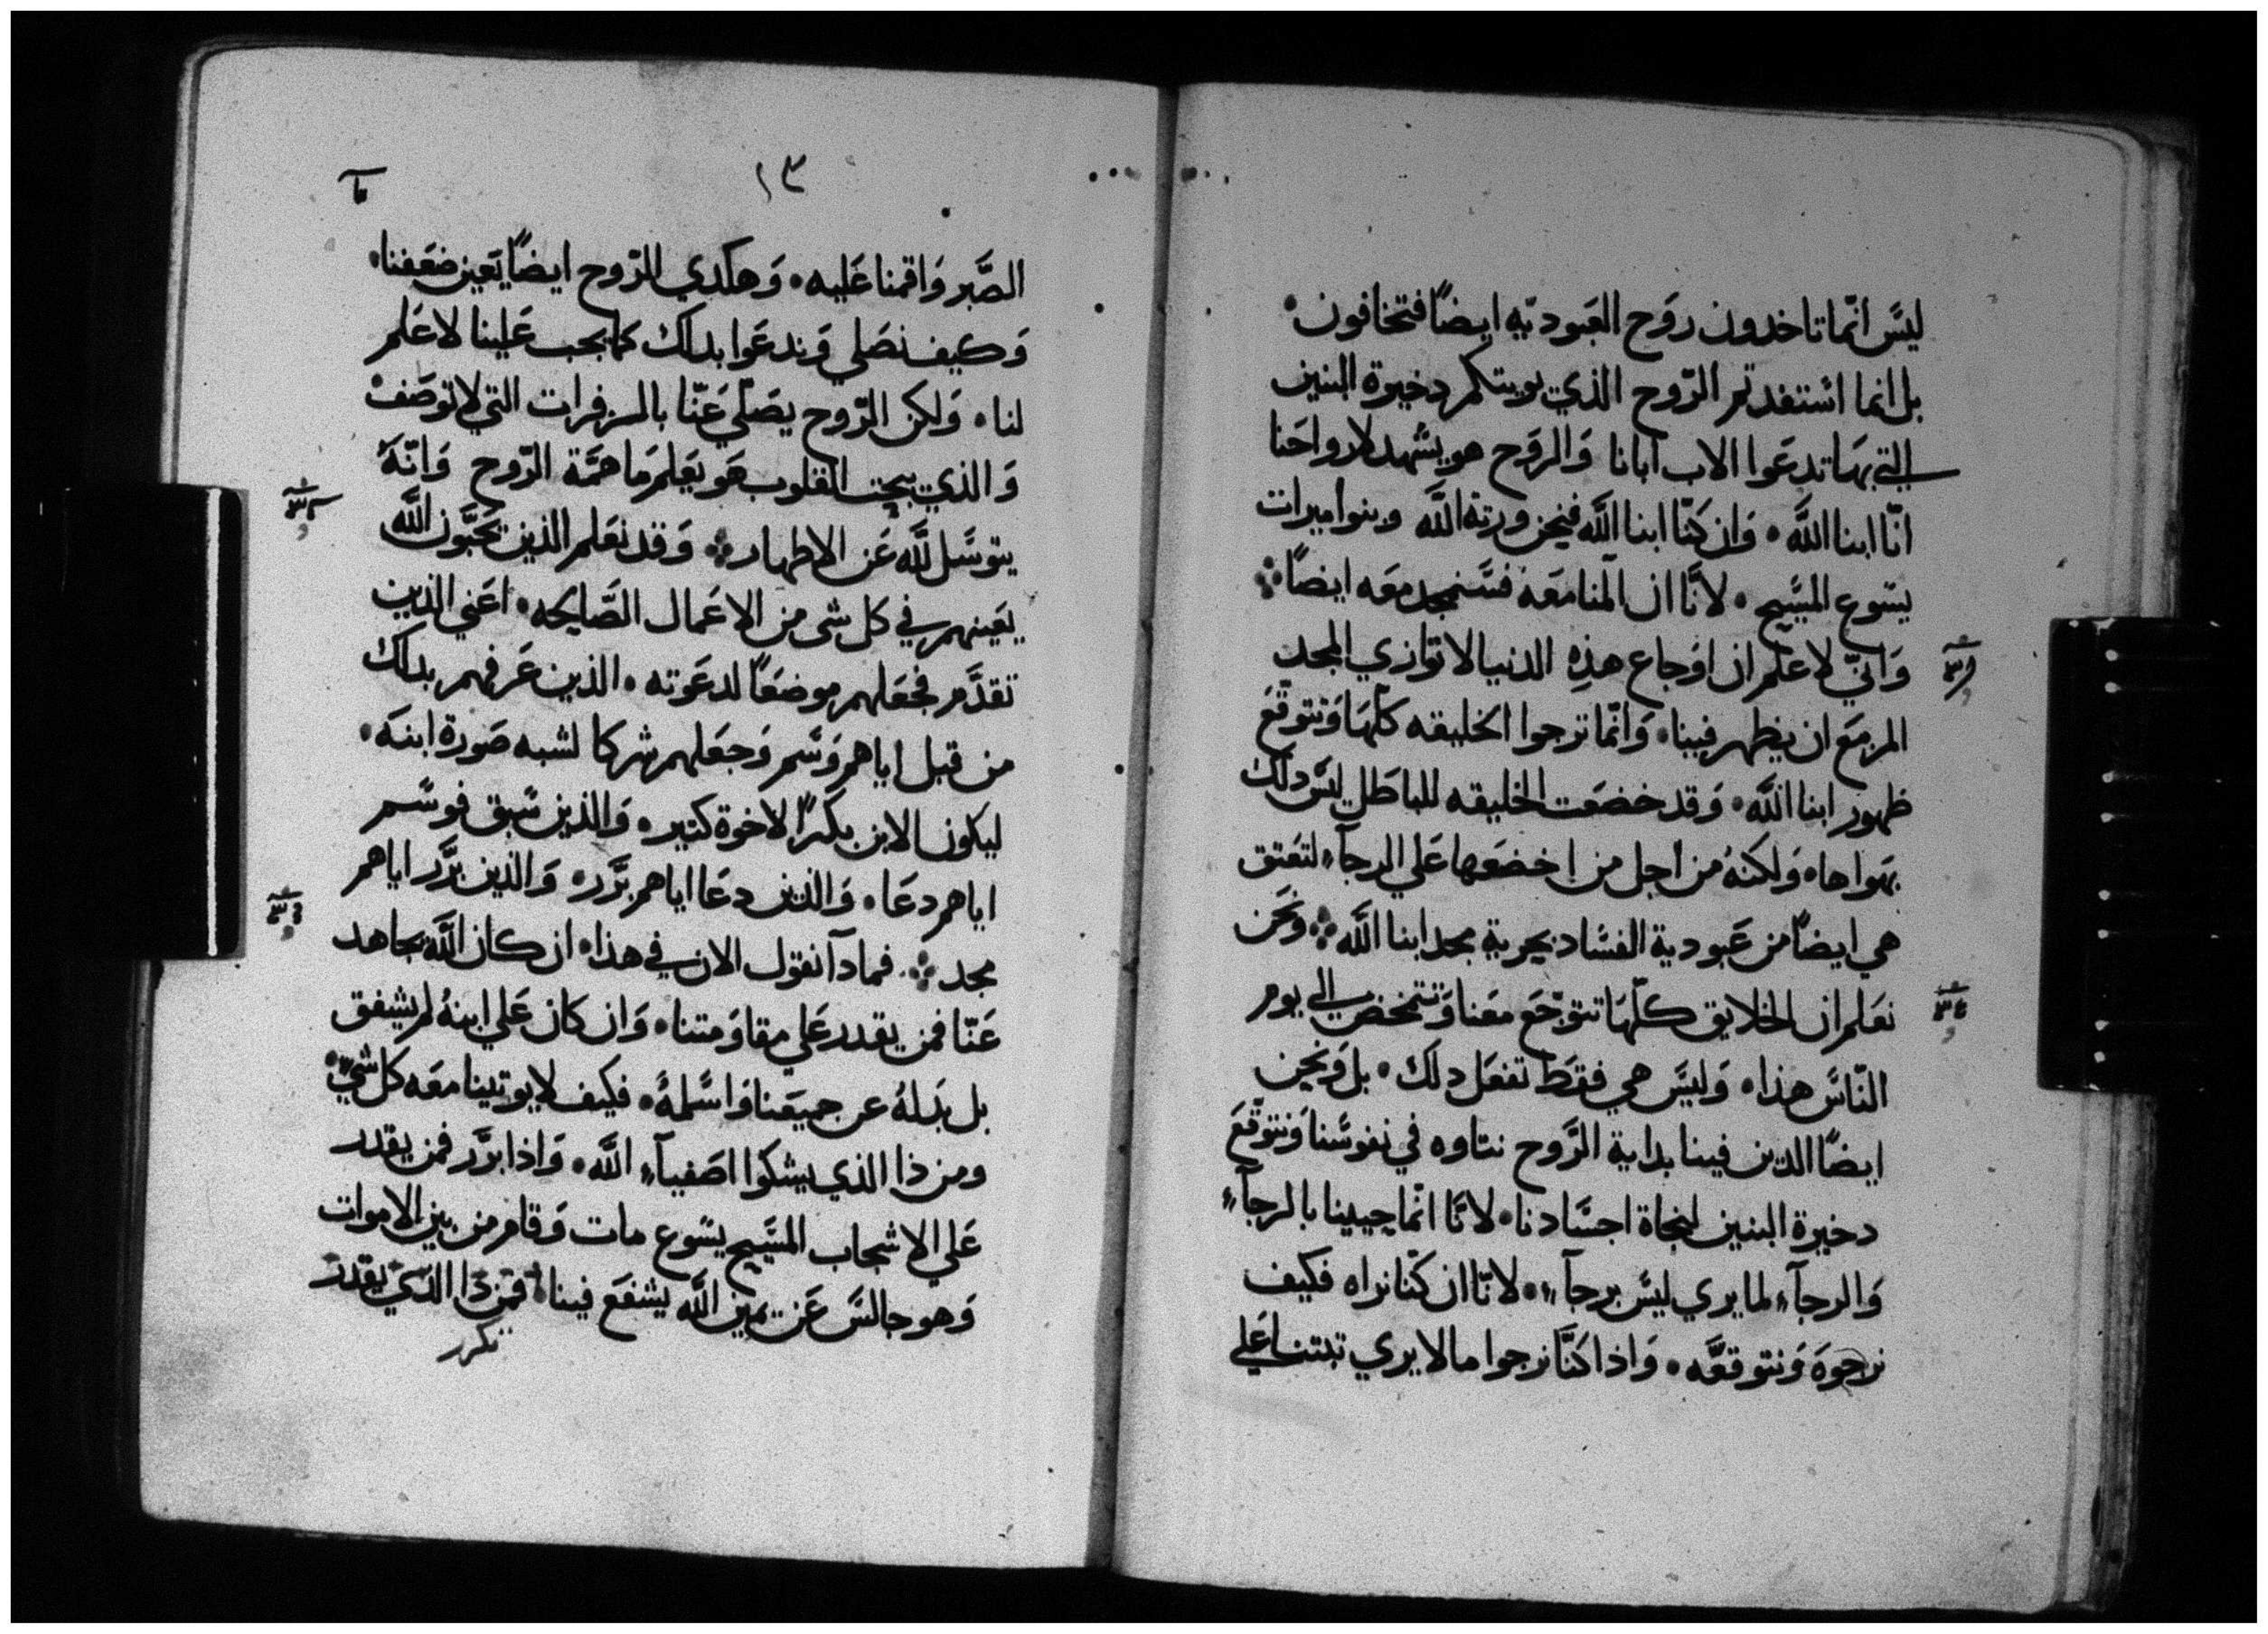 ليس انّما تاخدون روَح العَبوديّه ايضاً فتخافون
بل انما استفدتم الرّوح الذي بوبتكم دخيرة البنين
التي بهَا تدعَوا الاب ابانا وَالروَح هو يشهد لارواحَنا
انّا ابنا اللَّه وَان كنّا ابنا اللَّه فنحن ورتة اللَّه وبنوا ميرات
يسوع المسيَح لانَّا ان المنا معَه فسنمجد معَه ايضاً
وَانيّ لاعَلم ان اوجاع هذِه الدنيا لا توازي المجد
المزمَع ان يظهر فيينا وَانّما ترجوا الخليقه كلّهَا وَتتوقّعَ
ظهور ابنا اللَّه وَقد خضعَت الخليقه للباطَل ليسَ دلك
بهَواها وَلكنهُ من اجل من اخضعَها عَلي الرجآء لتعَتق
هي ايضاً من عَبودية الفسَاد بحرية مجد ابنا اللَّه ونحَن
نعَلم ان الخلايق كلّهَا تتوجّعَ معَنا وَتتمخض الي يوم
النّاسَ هذا وَليسَ هي فقطَ تفعَل دلك بل وَنحن
ايضاً الدين فينا بداية الرَّوح نتاوه في نفوسَنا وَنتوقّعَ
دخيرة البنين لنجاة اجسَادنا لانَّا انّما حيينا بالرجآء
وَالرجآء لما يري ليسَ برجآء لانّا ان كنّا نراه فكيف
نرجوَه وَنتوقعَّه وَاذا كنَّا نرجوا مالا يري تبتنا عَلي
١٣
الصَّبر وَاقمنا عَليه وَهكدي الرّوح ايضاً يَعين ضعَفنا
وَكيف نصَلي وَندعَوا بدلك كما يجب عَلينا لا عَلم
لنا وَلكن الرّوح يصَلّي عَنّا بالزفرات التي لا توصَف
وَالذي يبحت القلوب هَو يعَلم مَا همَّة الرّوح وَانّهُ
يتوسَل للَّه عَن الاطهار وَقد نعَلم الذين يحَبّون اللَّه
يعَينهم في كل شي من الاعَمال الصَّالحه اعَني الذين
تقدَّم فجعَلهم موضعَاً لدعَوته الذين عَرفهم بدلك
من قبل اياهم وَسَم وَجعَلهم شركا لشبه صَورة ابنهَ
ليكون الابن بكراً لاخوة كتير وَالذين سَبق فوسَم
اياهم دعَا وَالذين دعَا اياهم برَّر وَالذين برَّر اياهم
مجد فمادآ نقول الان في هذا ان كان اللَّه يجاهد
عَنّا فمن يقدر عَلي مقاوَمتنا وَان كان عَلي ابنهُ لم يشفق
بل بدَلهُ عن جميعَنا وَاسَلمهُ فكيف لا يوتينا معَه كل شيٍ
ومن ذا الذي يشكوا اصَفيآء اللَّه وَاذا برَّر فمن يقدر
عَلي الاشجاب المسَيح يسَوع مات وَقام من بين الاموات
وَهو جالسَ عَن يمين اللَّه يشفعَ فينا فمن دا الدي يقدر